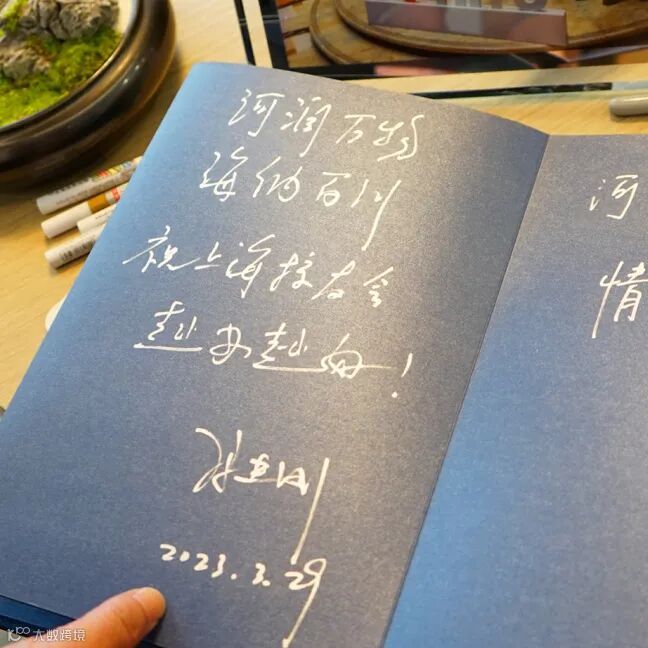 河润万物
海纳百川
祝上海校友会
越办越好!
2023.3.29
河
情
大数跨境